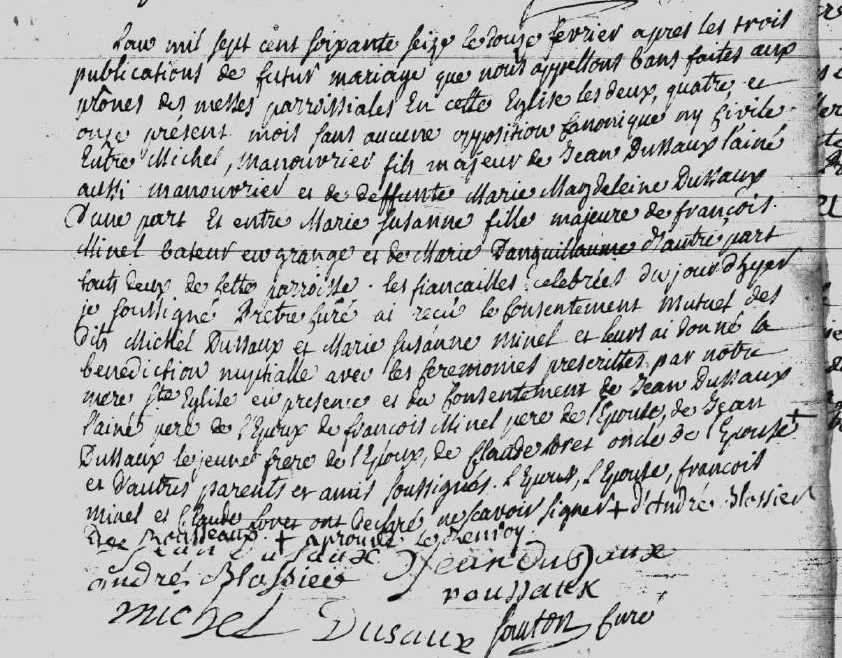 L'an mil sept cent soixante seize le douze fevrier apres les trois
publications de futur mariage que nous appellons bans faites aux
prônes des messes parroissiales En cette Eglise les deux, quatre, et
onze présent mois sans aucune opposition Canonique ny Civile
Entre Michel, manouvrier fils majeur de Jean Dussaux l'ainé
aussi manouvrier et de deffunte Marie Magdeleine Dussaux
D'une part Et entre Marie Susanne fille majeure de françois
Minel bateur en grange et de Marie Danguillaume d'autre part
touts deux de cette parroisse. les fiancailles celebrées du jour d'hyer
je soussigné Prêtre Curé ai recu le Consentement mutuel des
Dits Michel Dussaux et Marie Susanne Minel et leurs ai donné la
benediction nuptialle avec les Ceremonies prescrittes par notre
mere Ste Eglise en presence et du Consentement de Jean Dussaux
l'ainé pere de l'Epoux de françois Minel pere de l'Epouse, de Jean
Dussaux le jeune frere de l'Epoux, de Claude Loret oncle de l'Epouse +
et D'autres parents et amis soussignés. l'Epoux, l'Epouse, françois
minel et Claude Loret ont declaré ne scavoir signer + d'André Blossier
+ aprouvé le Renvoy.
Jean Dusaux Jean Dussaux
andré Blossier
Michel Dusaux Curé